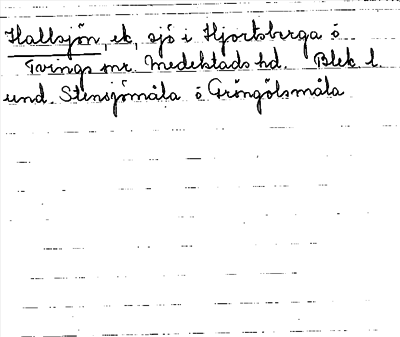 Hallsjön, ek, sjö i Hjortsberga ö
Tvings snr. Medelstads hd. Blek l.
und. Stensjömåla ö Gröngölsmåla